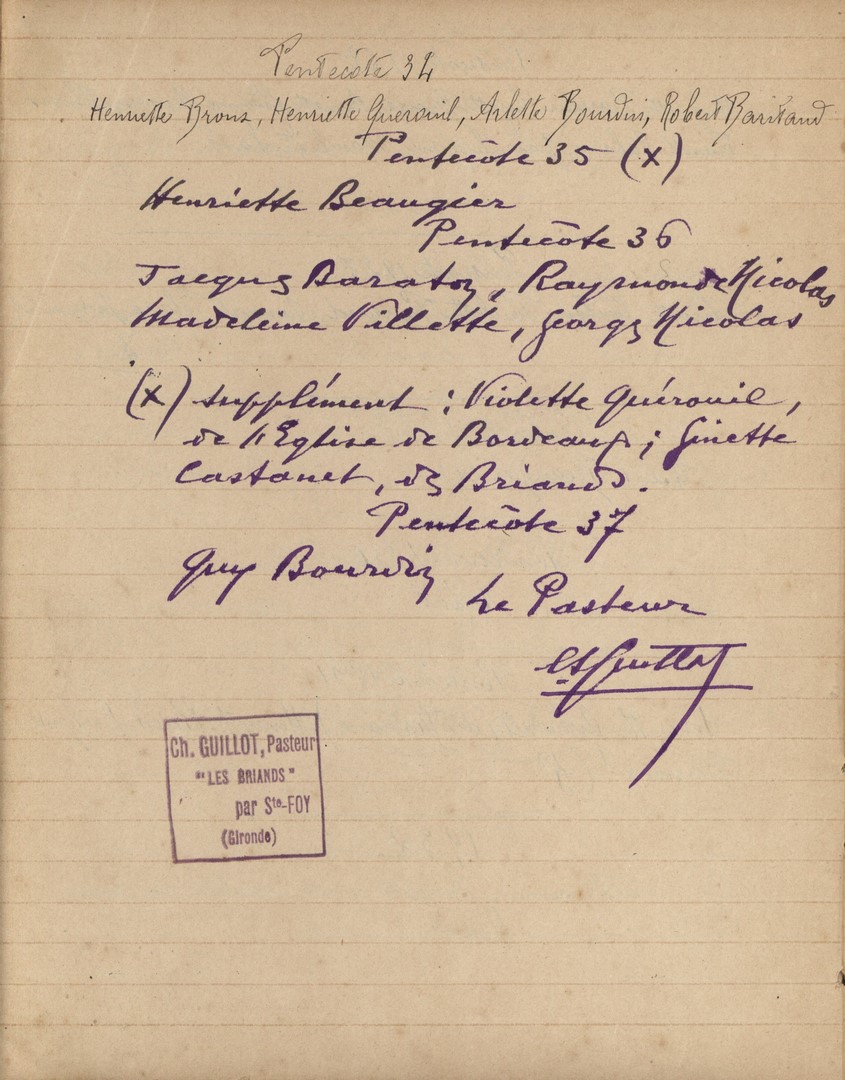 Pentecôte 34
Henriette Brons, Henriette Querouil, Arlette Bourdin, Robert Baritaud
Pentecôte 35 (x)
Henriette Beaugier
Pentecôte 36
Jacques Baraton, Raymonde Nicolas
Madeleine Villette, Georges Nicolas
(x) supplément : Violette Quérouil,
de l'Eglise de Bordeaux ; Ginette
Castanet, des Briands.
Pentecôte 37
Guy Bourdin
Le Pasteur
Ch Guillot
Ch. GUILLOT, Pasteur
"LES BRIANDS"
par Ste-FOY
(Gironde)